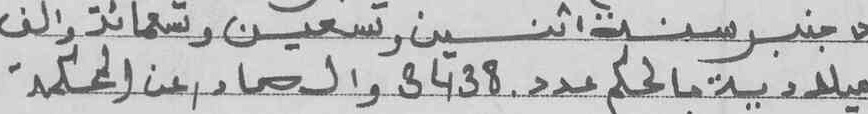 دجنبر سنة اثنين وتسعين وتسعمائة والف
ميلادية بالحكم عدد. 3438 والصادر عن المحكمة